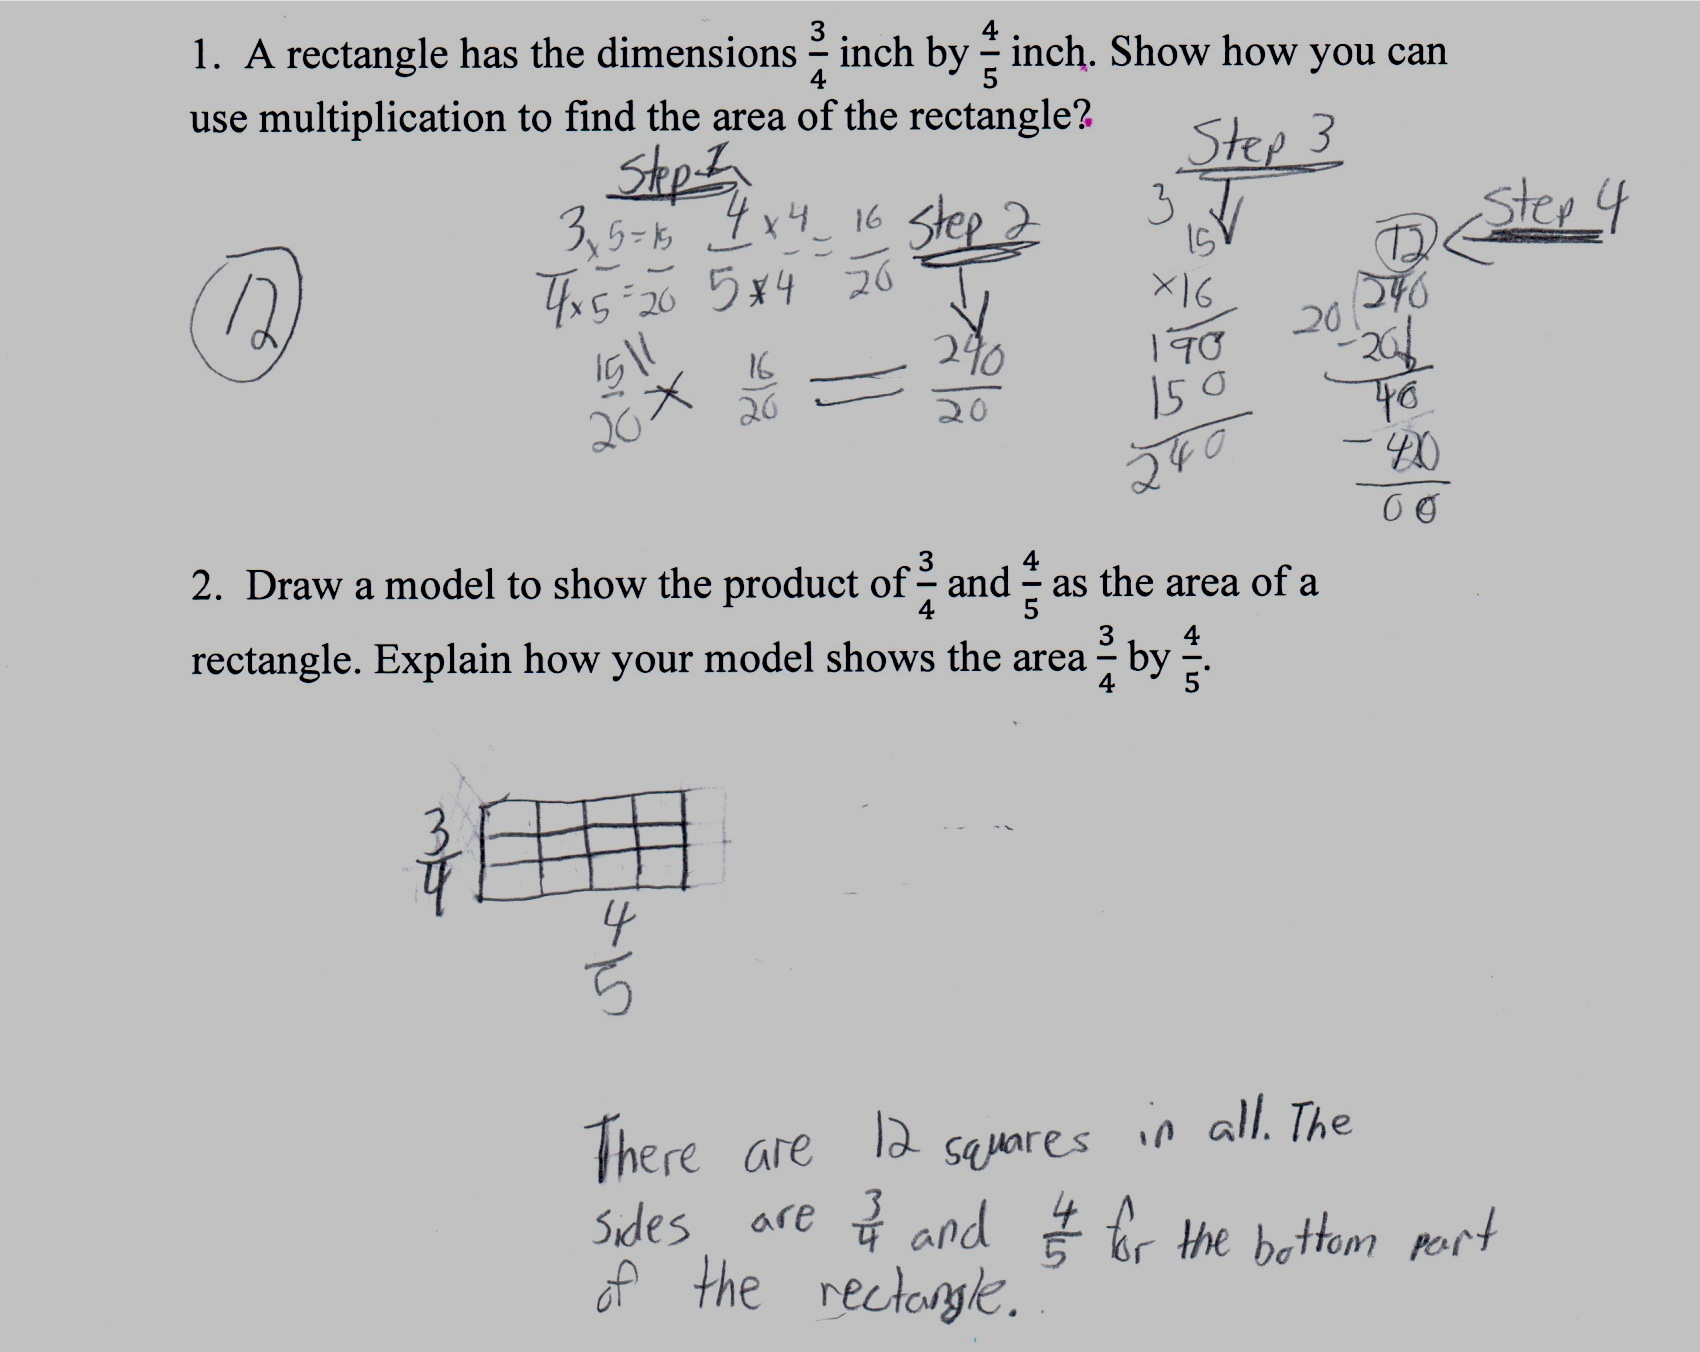 1. A rectangle has the dimensions 3/4 inch by 4/5 inch. Show how you can
use multiplication to find the area of the rectangle?
Step 1
3/4 × 5/5 = 15/20 4/5 × 4/4 = 16/20
15/20 × 16/20 = 240/20
12
Step 2
Step 3
3
15
×16
190
150
240
Step 4
12
20 240
-20
40
-40
00
2. Draw a model to show the product of 3/4 and 4/5 as the area of a
rectangle. Explain how your model shows the area 3/4 by 4/5.
3/4
4/5
There are 12 squares in all. The
sides are 3/4 and 4/5 for the bottom part
of the rectangle.